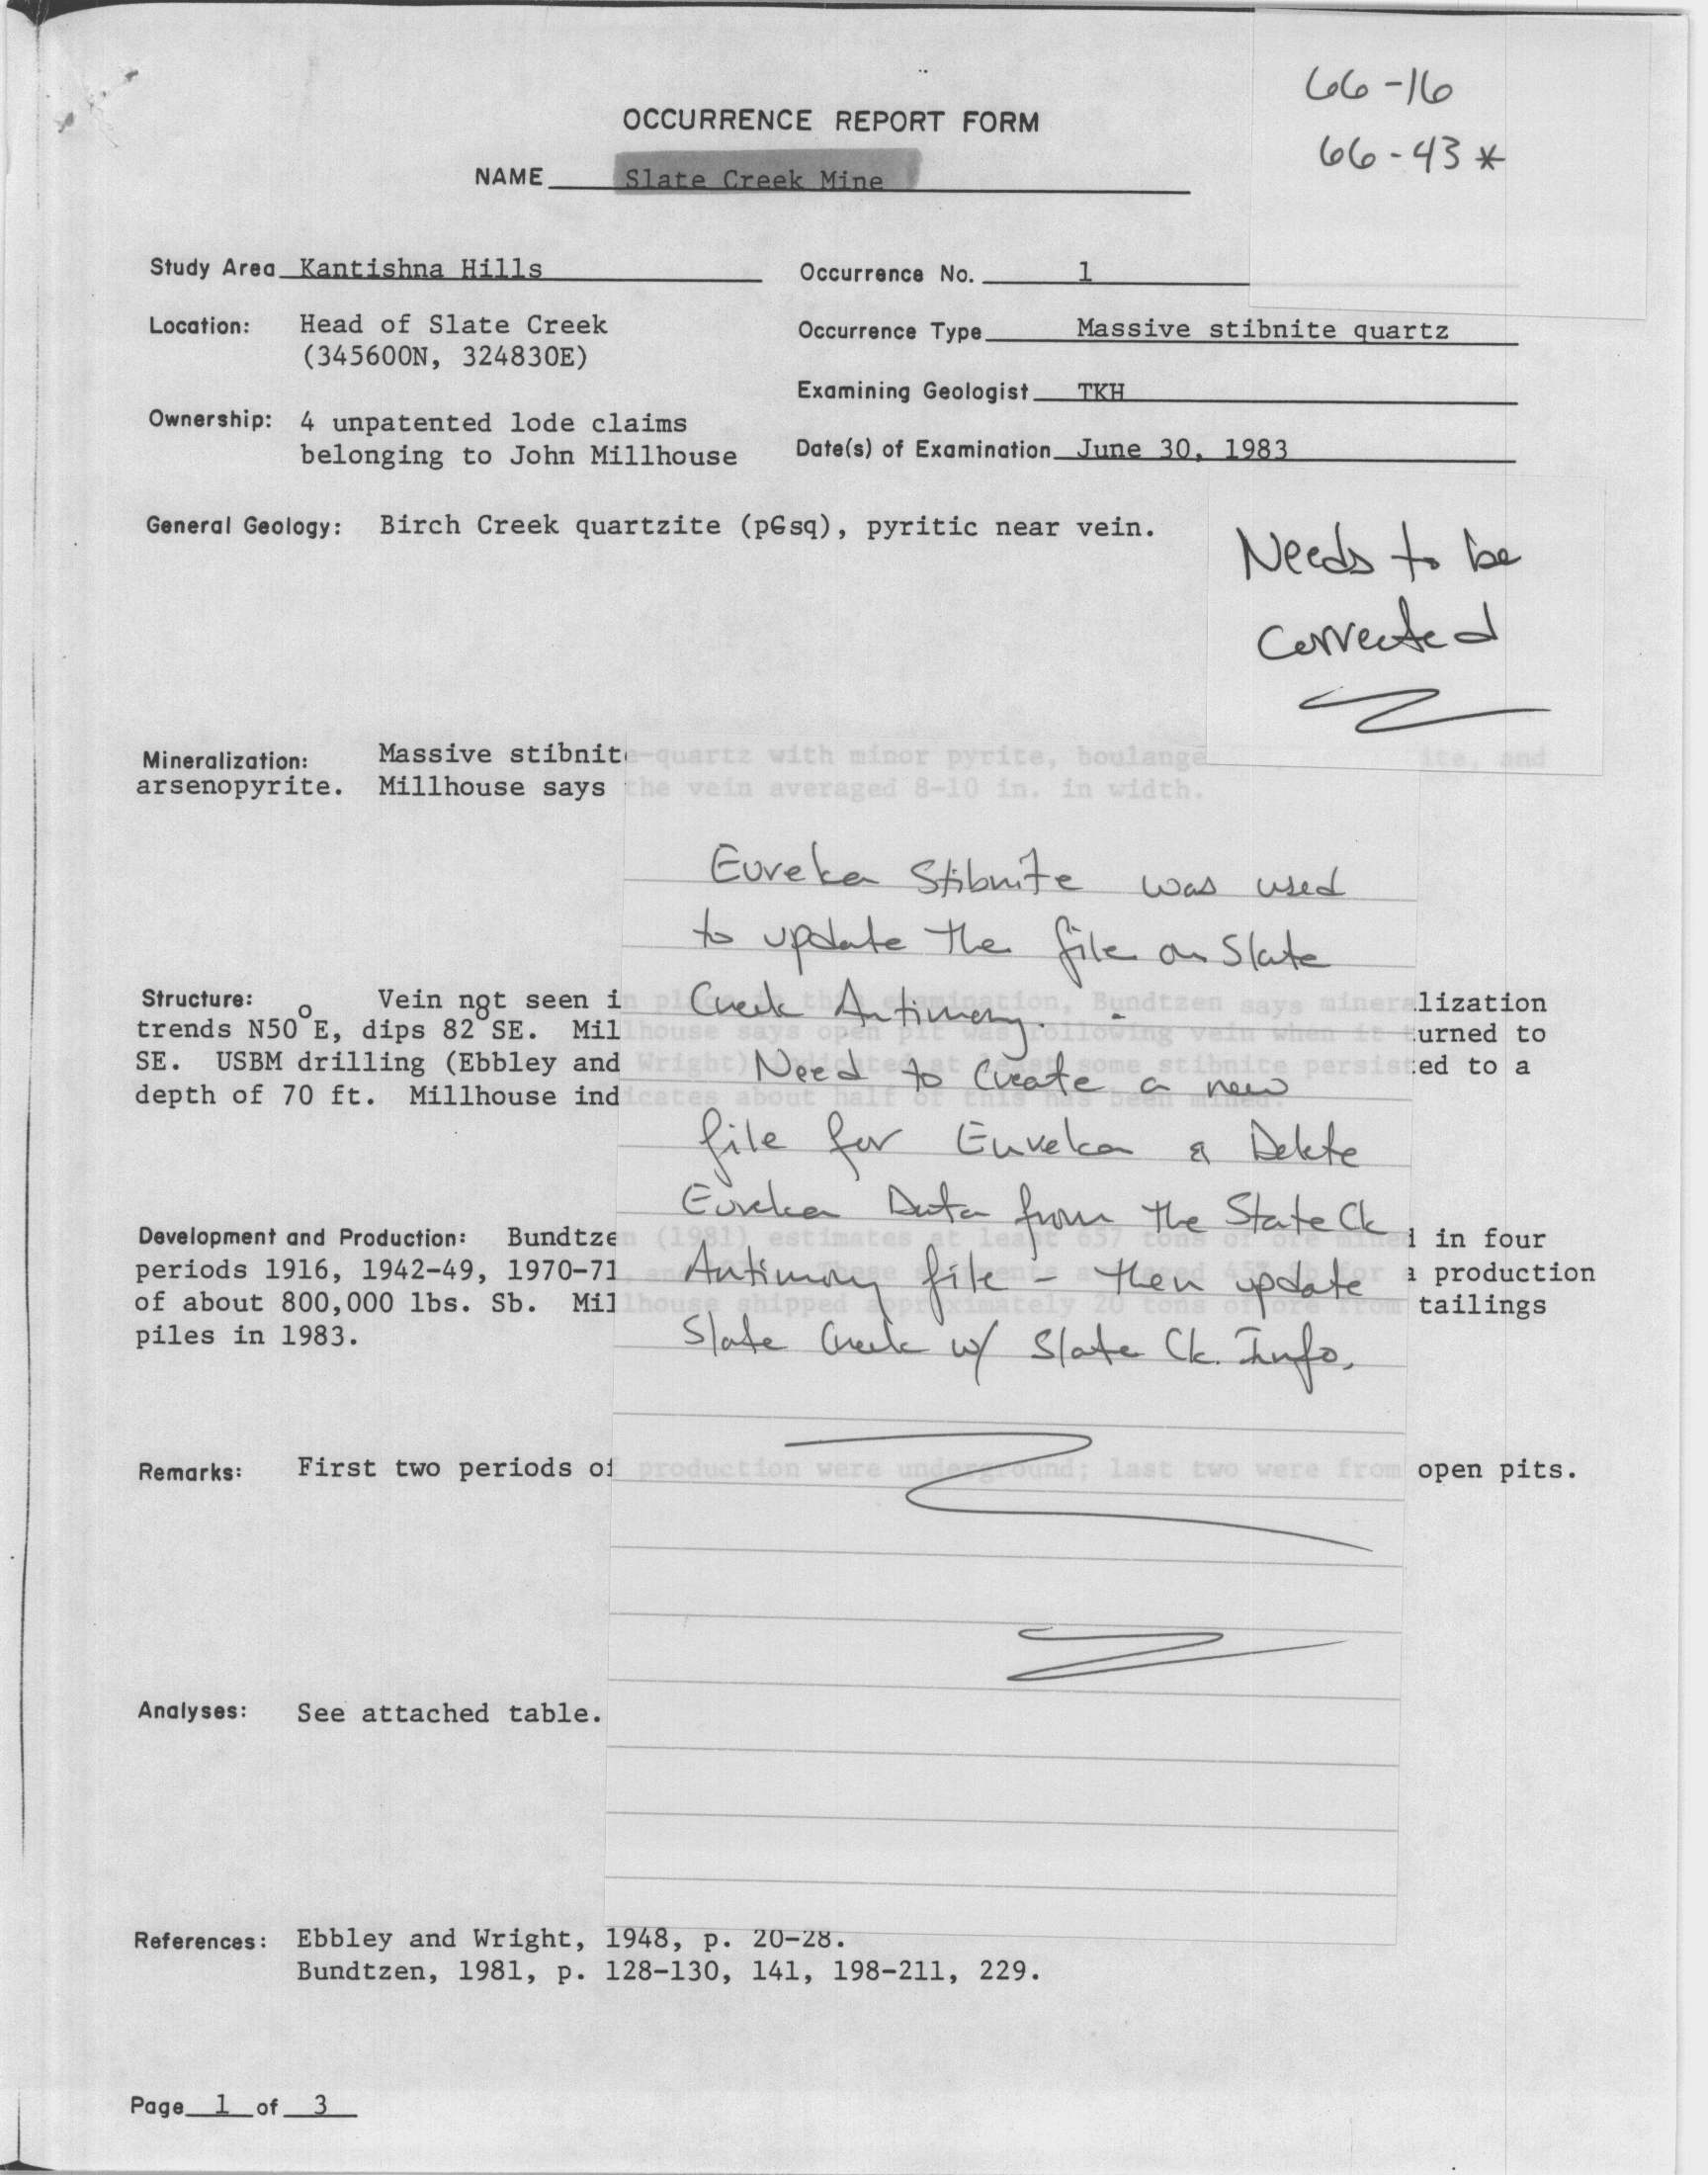 66-16
66-43*
OCCURRENCE REPORT FORM
NAME Slate Creek Mine
Study Area Kantishna Hills
Occurrence No. 1
Location: Head of Slate Creek
(345600N, 324830E)
Occurrence Type Massive stibnite quartz
Examining Geologist TKH
Ownership: 4 unpatented lode claims
belonging to John Millhouse
Date(s) of Examination June 30, 1983
General Geology: Birch Creek quartzite (pЄsq), pyritic near vein.
Needs to be
corrected
Mineralization: Massive stibnite-quartz with minor pyrite, boulange ite, and
arsenopyrite. Millhouse says the vein averaged 8-10 in. in width.
Eureka Stibnite was used
to update the file on Slate
Creek Antimony.
Need to create a new
file for Eureka & Delete
Eureka Data from the Slate Ck
Antimony file - then update
Slate Creek w/ Slate Ck. Info.
Structure: Vein not seen in place in this examination, Bundtzen says mineralization
trends N50°E, dips 82°SE. Millhouse says open pit was following vein when it turned to
SE. USBM drilling (Ebbley and Wright) indicated at least some stibnite persisted to a
depth of 70 ft. Millhouse indicates about half of this has been mined.
Development and Production: Bundtzen (1981) estimates at least 657 tons of ore mined in four
periods 1916, 1942-49, 1970-71, and These shipments averaged 45% Sb for a production
of about 800,000 lbs. Sb. Millhouse shipped approximately 20 tons of ore from tailings
piles in 1983.
Remarks: First two periods of production were underground; last two were from open pits.
Analyses: See attached table.
References: Ebbley and Wright, 1948, p. 20-28.
Bundtzen, 1981, p. 128-130, 141, 198-211, 229.
Page 1 of 3